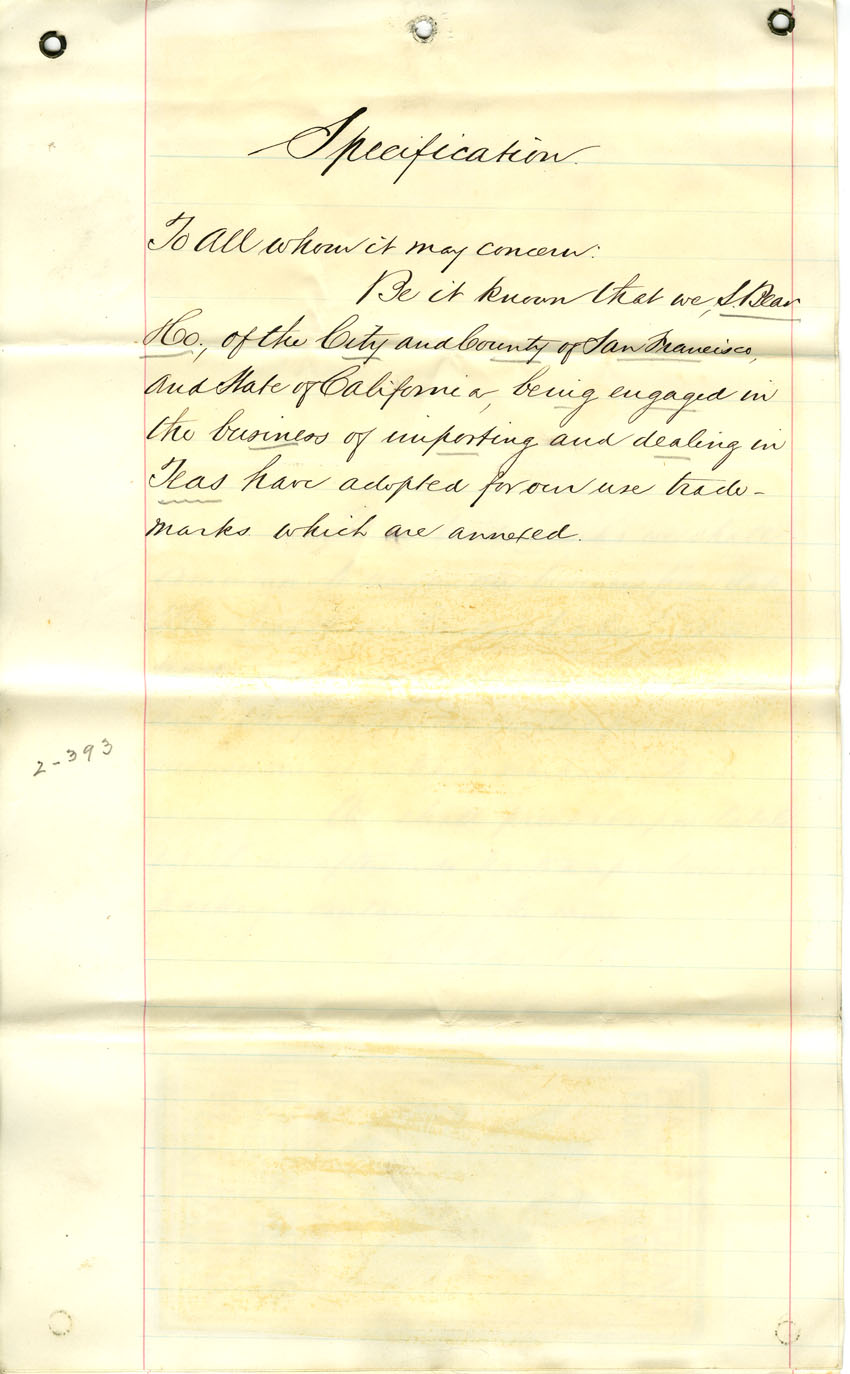 Specification.
To All whom it may concern:
Be it known that we, S. Bear
& Co., of the City and County of San Francisco,
and State of California, being engaged in
the business of importing and dealing in
Teas have adopted for our use trade-
marks which are annexed.
2-393